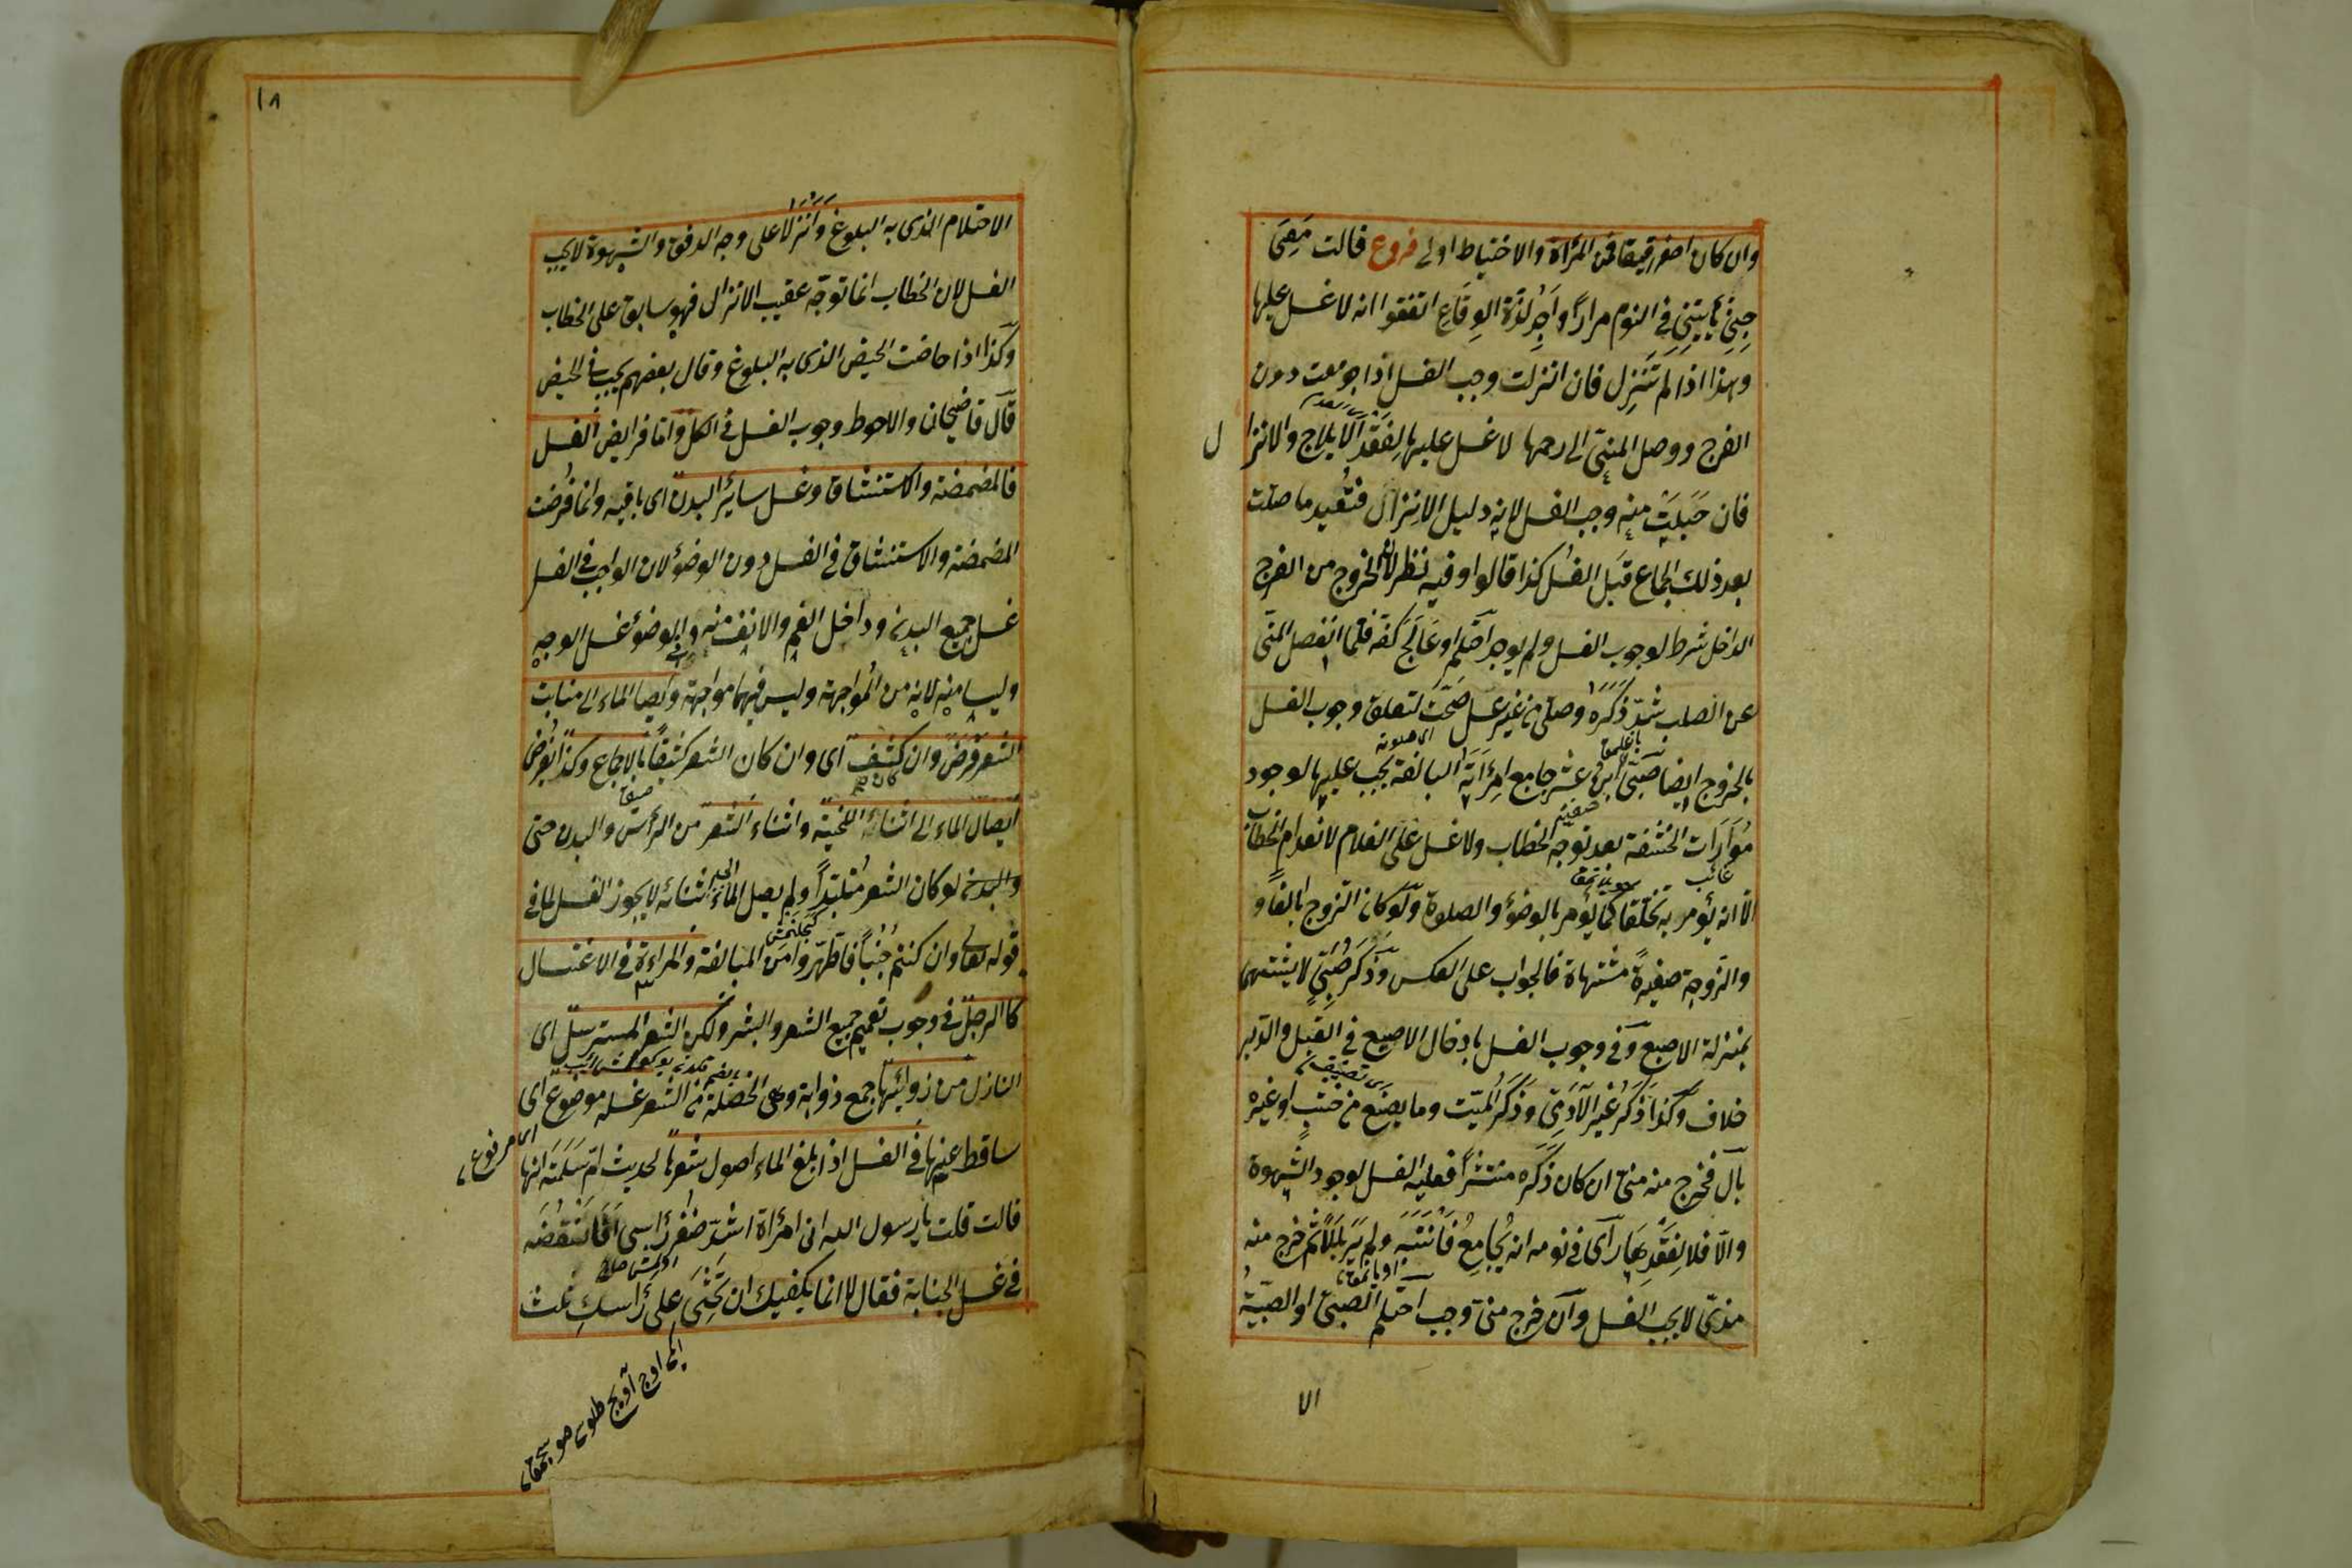 وان كان اصفر رقيقا فمن المرأة والاحتياط اولى فروع قالت معى
جنى يأتينى فى النوم مرارًا واجد لذة الوقاع اتفقوا انه لا غسل عليها
وهذا اذا لم تنزل فان انزلت وجب الغسل اذا جومعت دون
الفرج ووصل المنى الى رحمها لا غسل عليها لفقد الايلاج والانزا
ل
فان حبلت منه وجب الغسل لانه دليل الانزال فتعيد ما صلت
بعد ذلك الجماع قبل الغسل كذا قالوا وفيه نظر لان الخروج من الفرج
الداخل شرط لوجوب الغسل ولم يوجد احتلم او عالج كفه فلما انفصل المنى
عن الصلب شد ذكره وصلى من غير غسل صحت لتعلق وجوب الغسل
اى صلوته
بالخروج ايضا صبى ابن عشر جامع امرأته البالغة يجب عليها لوجود
موارات الحشفة بعد توجه الخطاب ولا غسل على الغلام لانعدام الخطاب
الا انه يؤمر به تخلقا كما يؤمر بالوضؤ والصلوة ولو كان الزوج بالغا و
والزوجة صغيرة مشتهاة فالجواب على العكس وذكر صبى لا يشتهى
بمنزلة الاصبع وفى وجوب الغسل بادخال الاصبع فى القبل والدبر
خلاف وكذا ذكر غير الآدمى وذكر الميت وما يصنع من خشب او غيره
بال فخرج منه منى ان كان ذكره منتشرًا فعليه الغسل لوجود الشهوة
والا فلا لفقدها رأى فى نومه انه يجامع فانتبه ولم ير بللا ثم خرج منه
مذى لا يجب الغسل وان خرج منى وجب احتلم الصبى او الصبية
الا
١٨
الاحتلام الذى به البلوغ وانزلا على وجه الدفق والشهوة لا يجب
الغسل لان الخطاب انما توجه عقيب الانزال فهو سابق على الخطاب
وكذا اذا حاضت الحيض الذى به البلوغ وقال بعضهم يجب فى الحيض
قال قاضيخان والاحوط وجوب الغسل فى الكل واما فرايض الغسل
فالمضمضة والاستنشاق وغسل سائر البدن اى باقيه وانما فرضت
المضمضة والاستنشاق فى الغسل دون الوضؤ لان الواجب فى الغسل
غسل جميع البدن وداخل الفم والانف منه وفى الوضؤ غسل الوجه
وليسا منه لانه من المواجهة وليس فيهما مواجهة وايصا الماء الى منابت
الشعر فرض وان كثف اى وان كان الشعر كثيفًا بالاجماع وكذا يفرض
ايصال الماء الى اثناء اللحية واثناء الشعر من الرأس والبدن حتى
والبدن لو كان الشعر متلبدًا ولم يصل الماء الى اثنائه لا يجوز الغسل لما فى
قوله تعالى وان كنتم جنبًا فاطهروا من المبالغة والمراءة فى الاغتسال
كالرجل فى وجوب تعميم جميع الشعر والبشر ولكن الشعر المسترسل اى
النازل من ذوائبها جمع ذوابة وهى الخصلة من الشعر غسله موضوع اى
اى مرفوع
ساقط عنها فى الغسل اذا بلغ الماء اصول شعرها لحديث ام سلمة انها
قالت قلت يا رسول الله انى امرأة اشد ضفر رأسى افانقضه
فى غسل الجنابة فقال لا انما يكفيك ان تحثى على رأسك ثلث